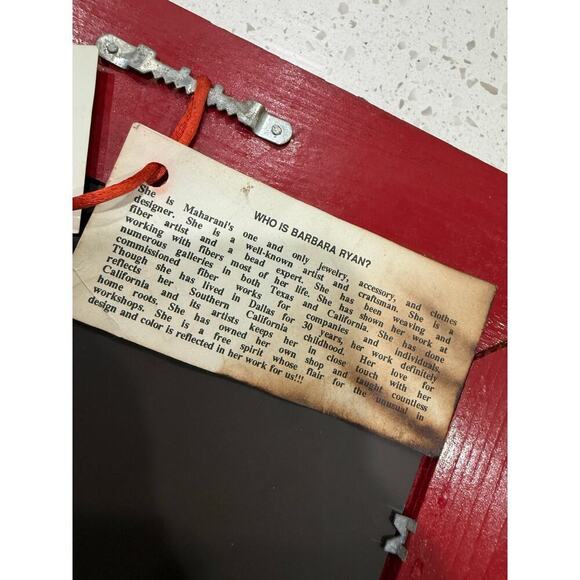 WHO IS BARBARA RYAN?
She is Maharani's one and only jewelry, accessory, and clothes
designer. She is a well-known artist and craftsman. She is a
fiber artist and a bead expert. She has been weaving and
working with fibers most of her life. She has shown her work at
numerous galleries in both Texas and California. She has done
commissioned fiber works for companies and individuals.
Though she has lived in Dallas for 30 years, her work definitely
reflects her Southern California childhood. Her love for
California and its artists keeps her in close touch with her
home roots. She has owned her own shop and taught countless
workshops. She is a free spirit whose flair for the unusual in
design and color is reflected in her work for us!!!